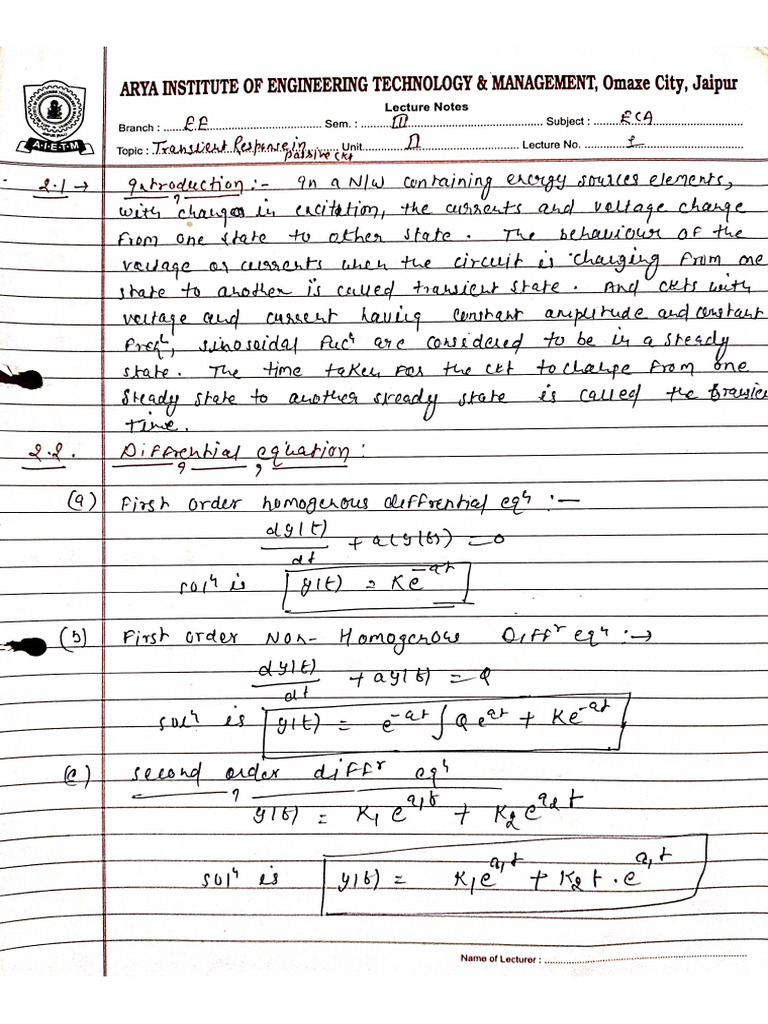 ARYA INSTITUTE OF ENGINEERING TECHNOLOGY & MANAGEMENT, Omaxe City, Jaipur
Lecture Notes
Branch : EE Sem. : III Subject : ECA
Topic : Transient Response in passive ckt Unit II Lecture No. 1
A-I-E-T-M
2.1 → Introduction :- In a N/W containing energy sources elements,
with changes in excitation, the currents and voltage change
from one state to other state. The behaviour of the
voltage or currents when the circuit is changing from one
state to another is called transient state. And ckts with
voltage and current having constant amplitude and constant
freqⁿ, sinosoidal funcⁿ are considered to be in a steady
state. The time taken for the ckt to change from one
steady state to another steady state is called the transien
time.
2.2. Diffrential equation :
(a) First order homogenous diffrential eqⁿ :-
dy(t)/dt + a(y(t)) = 0
solⁿ is y(t) = Ke^-at
(b) First order Non-Homogenous Diffʳ eqⁿ :→
dy(t)/dt + ay(t) = Q
solⁿ is y(t) = e^-at ∫Q e^at + Ke^-at
(c) second order diffʳ eqⁿ
y(t) = K₁e^a₁t + K₂e^a₂t
solⁿ is y(t) = K₁e^a₁t + K₂t.e^a₁t
Name of Lecturer :